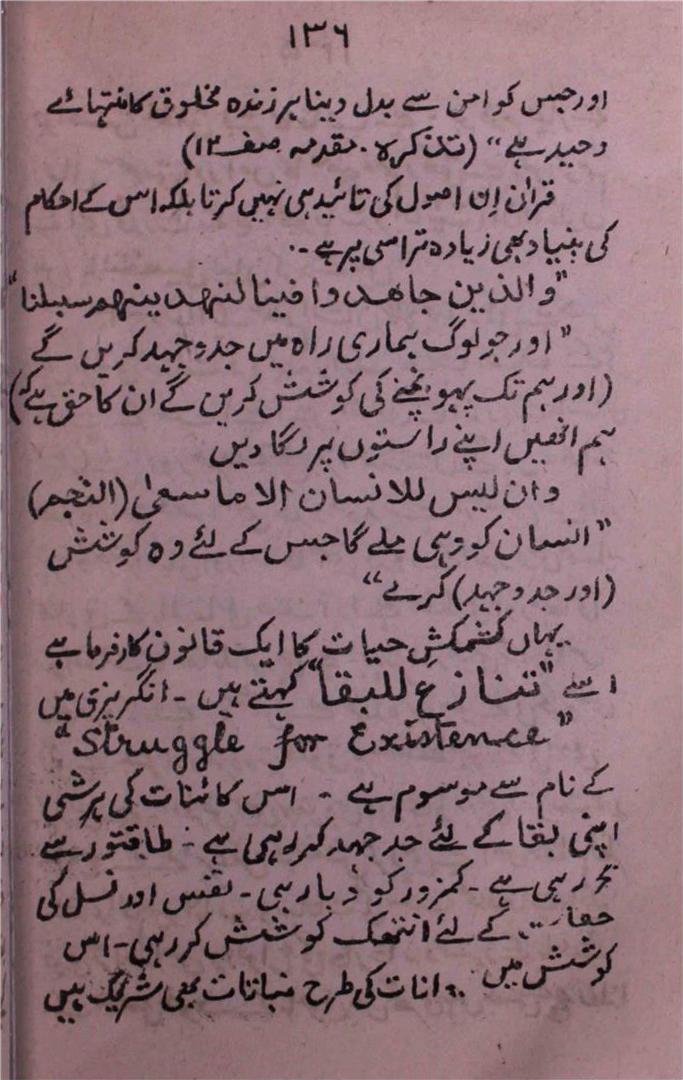 ۱۳۶
اور جس کو امن سے بدل دینا ہر زندہ مخلوق کا منتہائے
وحید ہے“ (تذکرہ . مقدمہ صفہ ۱۲)
قرآن اِن اصول کی تائید ہی نہیں کرتا بلکہ اس کے احکام
کی بنیاد بھی زیادہ تر اسی پر ہے ۔.
”والذین جاھدوا فینا لنھدینھم سبلنا“
”اور جو لوگ ہماری راہ میں جدوجہد کریں گے
(اور ہم تک پہونچنے کی کوشش کریں گے ان کا حق ہے کہ)
ہم انھیں اپنے راستوں پر لگا دیں
وان لیس للانسان الا ما سعیٰ (النجم)
”انسان کو وہی ملے گا جس کے لئے وہ کوشش
(اور جدوجہد) کرے“
یہاں کشمکشِ حیات کا ایک قانون کارفرما ہے
اسے ”تنازع للبقا“ کہتے ہیں ۔ انگریزی میں
“Struggle for Existence”
کے نام سے موسوم ہے ۔ اس کائنات کی ہر شی
اپنی بقا کے لئے جد جہد کر رہی ہے ۔ طاقتور سے
رہی ہے ۔ کمزور کو دبا رہی ۔ نفس اور نسل کی
کے لئے انتھک کوشش کر رہی ۔ اس
کوشش میں انات کی طرح نباتات بھی شریک ہیں